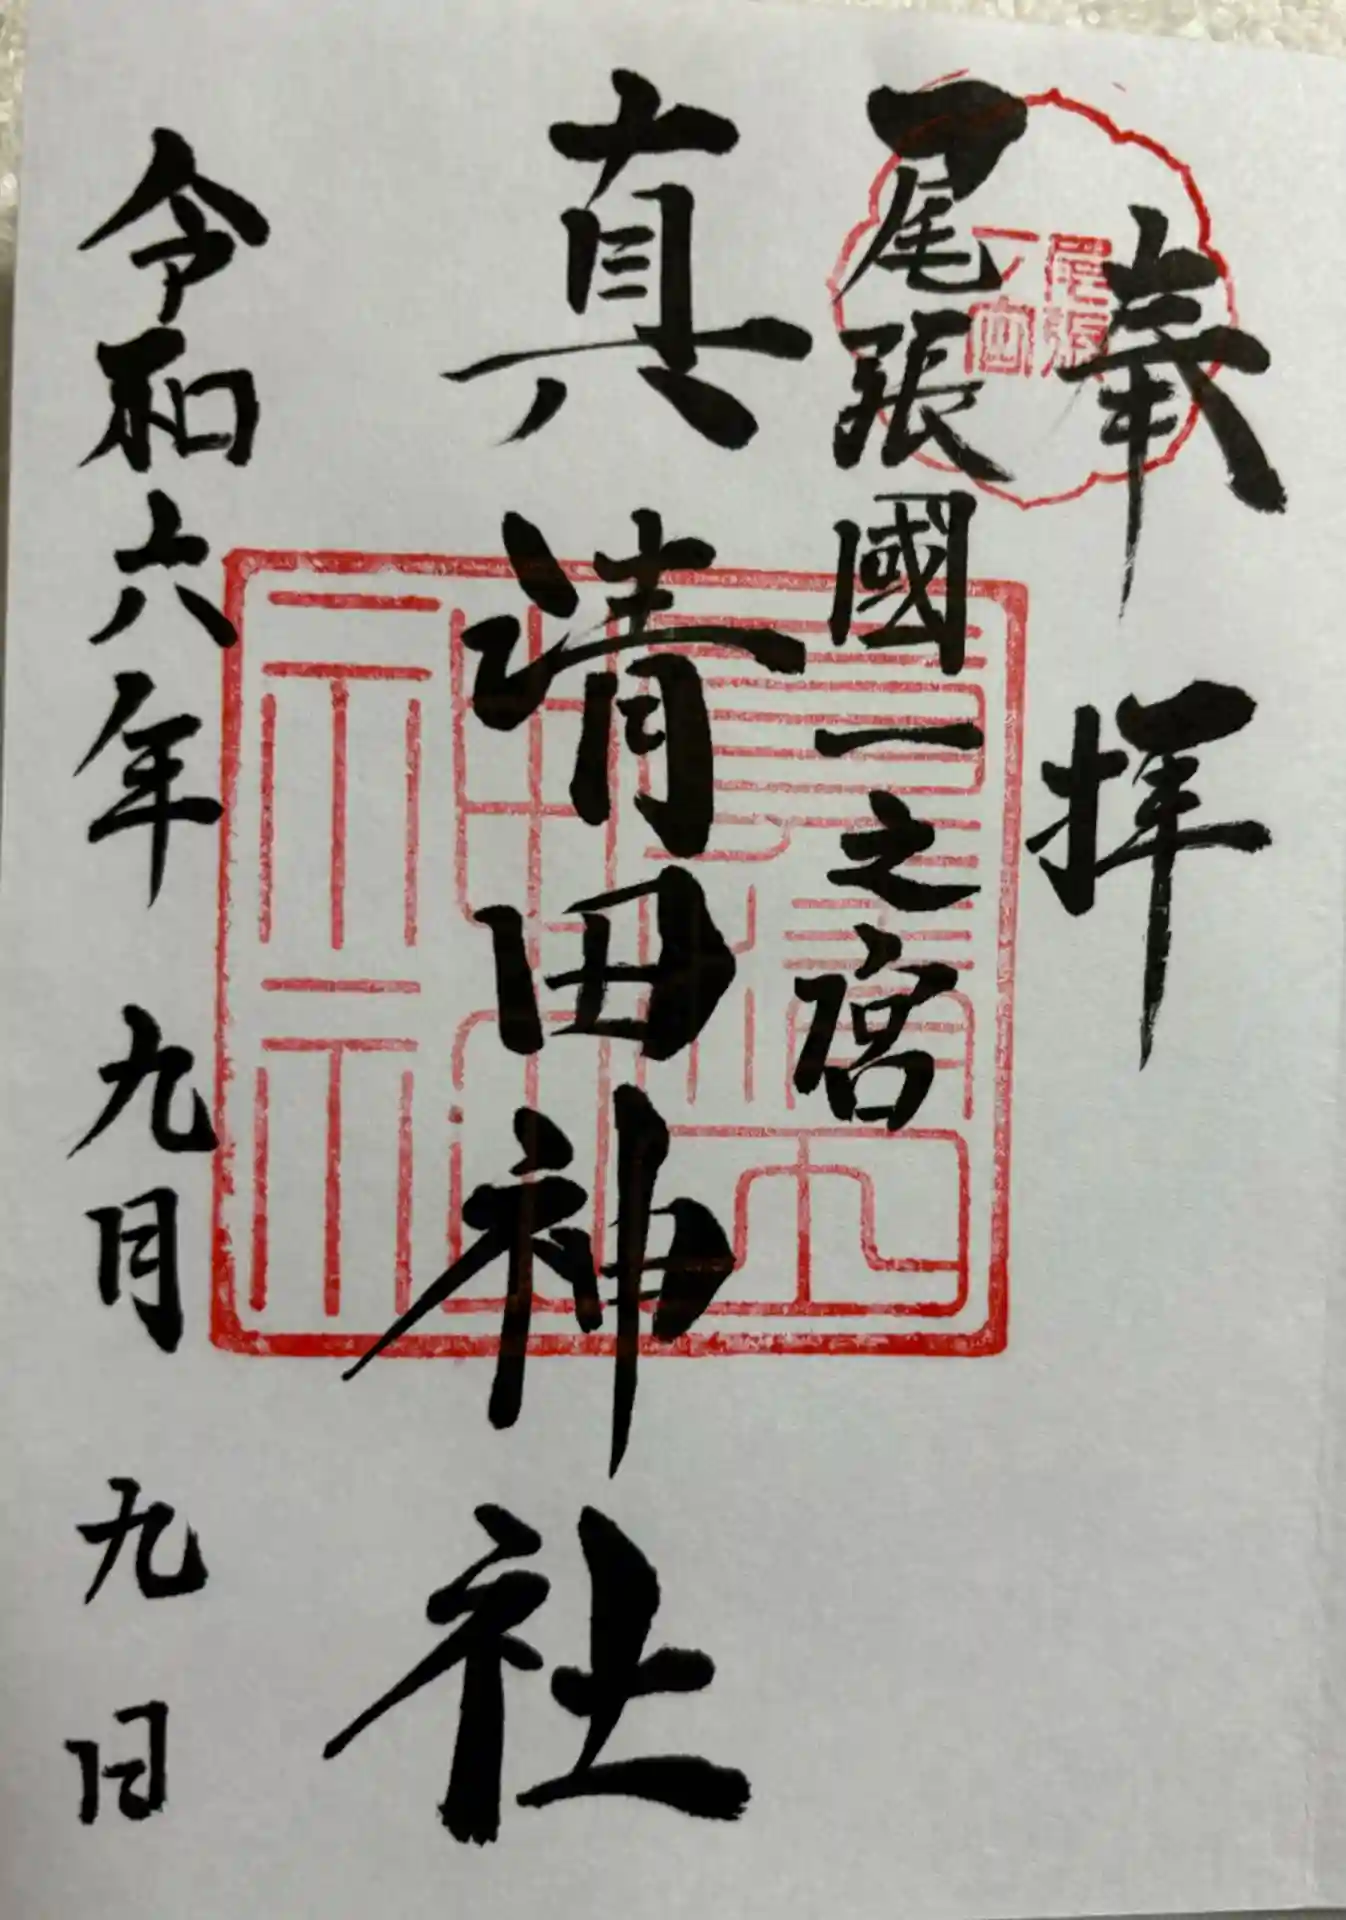 奉拝
尾張國一之宮
真清田神社
令和六年九月九日
尾張
一宮
真清田
神社